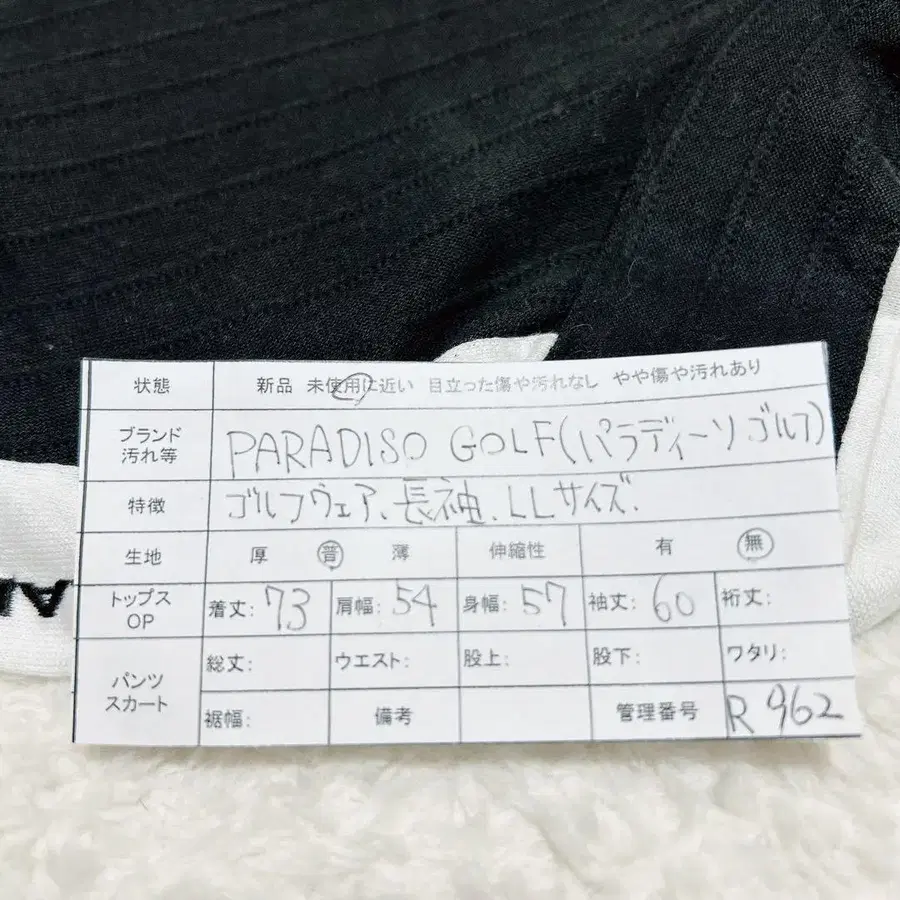 状態 新品 未使用に近い 目立った傷や汚れなし やや傷や汚れあり
ブランド 汚れ等 PARADISO GOLF(パラディーソ ゴルフ)
特徴 ゴルフウェア、長袖、LLサイズ.
生地 厚 普 薄 伸縮性 有 無
トップス OP 着丈: 73 肩幅: 54 身幅: 57 袖丈: 60 裄丈:
パンツ スカート 総丈: ウエスト: 股上: 股下: ワタリ:
裾幅: 備考 管理番号 R 962